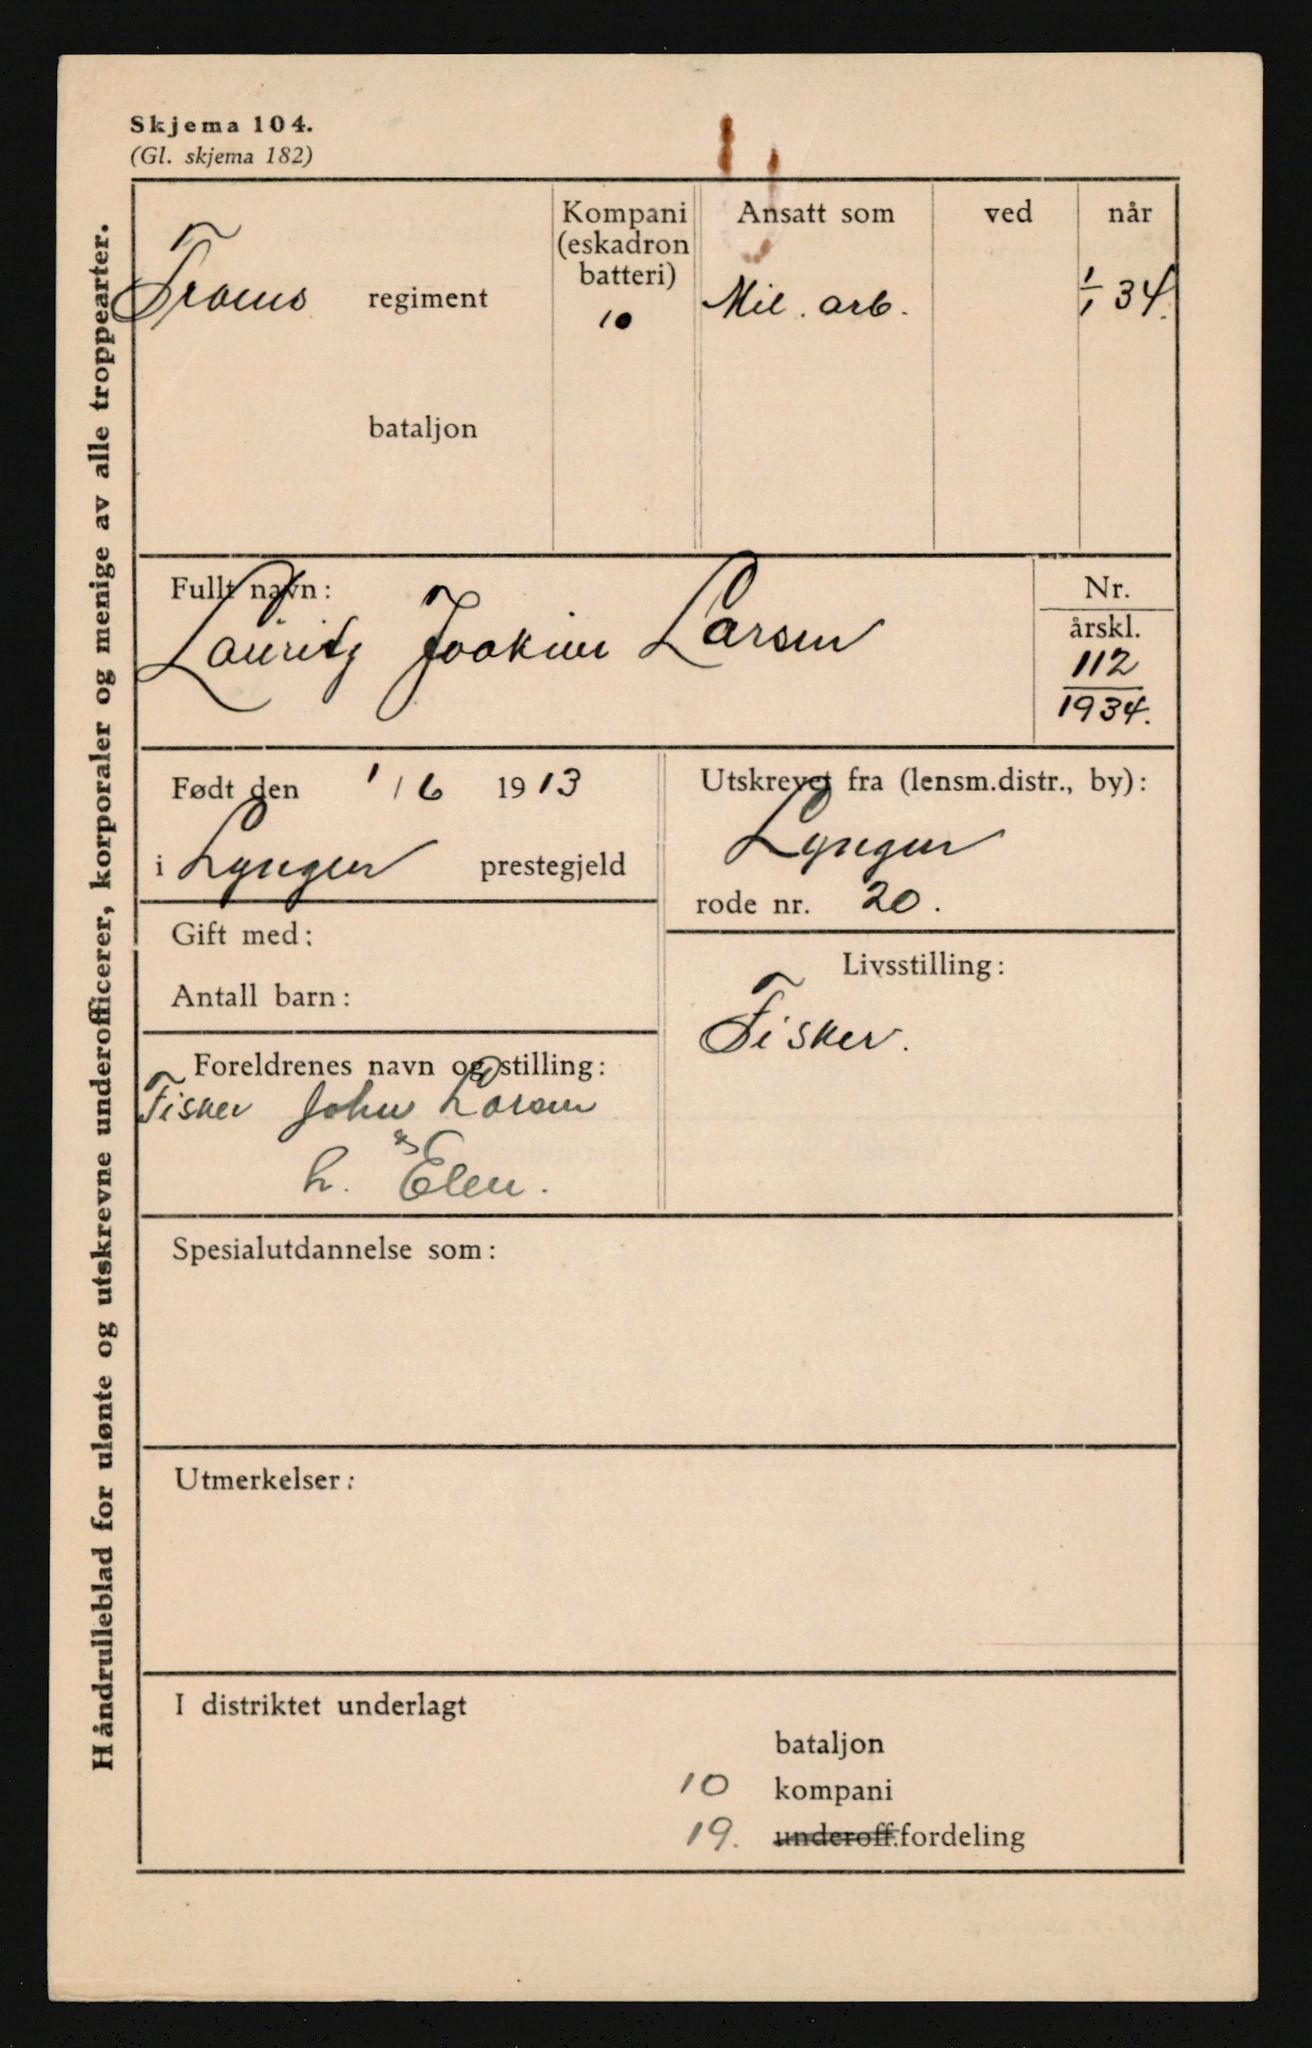 Skjema 104.
(Gl. skjema 182)
Håndrulleblad for ulønte og utskrevne underofficerer, korporaler og menige av alle troppearter.
Troms regiment
bataljon
Kompani
(eskadron
batteri)
10
Ansatt som
Mil. arb.
ved
når
1/1 34.
Fullt navn:
Lauritz Joakim Larsen
Nr.
årskl.
112
1934.
Født den 1/6 1913
i Lyngen prestegjeld
Utskrevet fra (lensm.distr., by):
Lyngen
rode nr. 20.
Gift med:
Antall barn:
Livsstilling:
Fisker.
Foreldrenes navn og stilling:
Fisker John Larsen
h. Elen.
Spesialutdannelse som:
Utmerkelser:
I distriktet underlagt
bataljon
10 kompani
19. underoff.fordeling